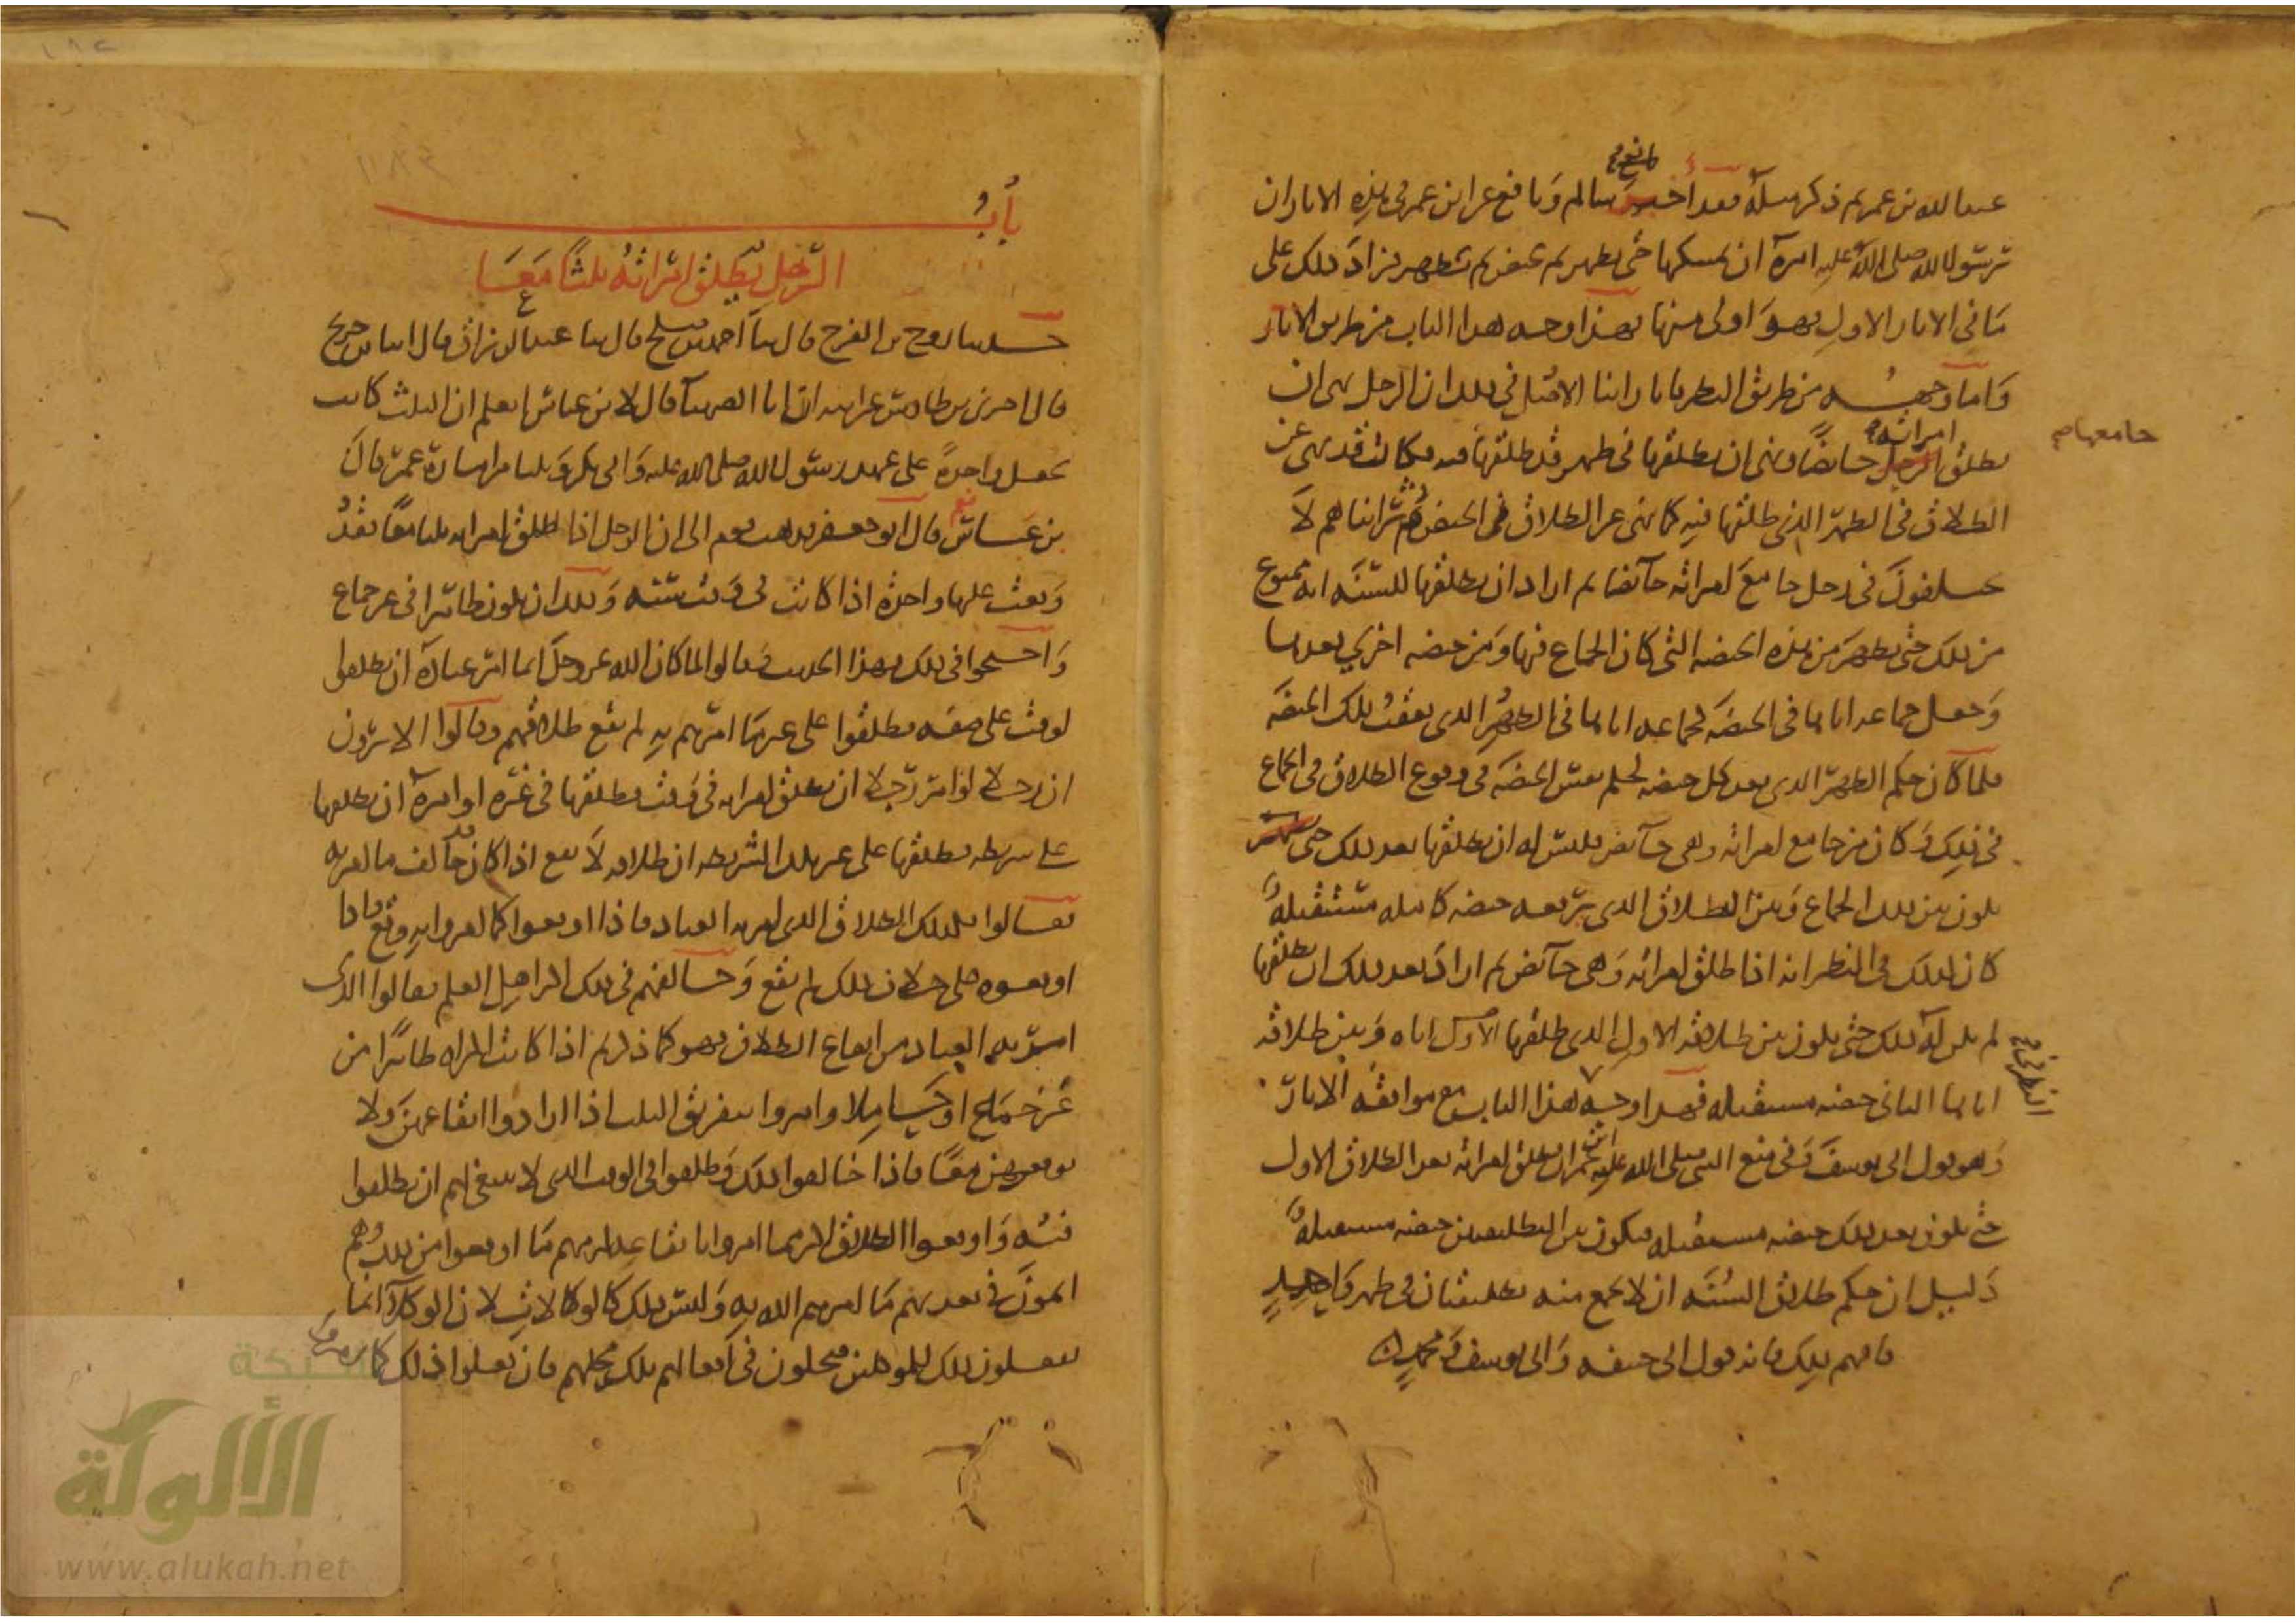 عبد الله بن عمر ثم ذكر مثله فقد أخبر سالم ونافع عن ابن عمر في هذه الآثار أن
رسول الله صلى الله عليه أمره أن يمسكها حتى تطهر ثم تحيض ثم تطهر فزاد ذلك على
ما في الآثار الأول فهو أولى منها فهذا وجه هذا الباب من طريق الآثار
وأما وجهه من طريق النظر فإنا رأينا الأصل في ذلك أن الرجل نهي أن
يطلق امرأته حائضا ونهي أن يطلقها في طهر قد طلقها فيه فكان قد نهي عن
جامعها صح
الطلاق في الطهر الذي طلقها فيه كما نهي عن الطلاق في الحيض ثم رأيناهم لا
يختلفون في رجل جامع امرأته حائضا ثم أراد أن يطلقها للسنة أنه ممنوع
من ذلك حتى تطهر من هذه الحيضة التي كان الجماع فيها ومن حيضة أخرى بعدها
وجعل جماعه إياها في الحيضة كجماعه إياها في الطهر الذي يعقب تلك الحيضة
فلما كان حكم الطهر الذي بعد كل حيضة كحكم نفس الحيضة في وقوع الطلاق في الجماع
في ذلك وكان من جامع امرأته وهي حائض فليس له أن يطلقها بعد ذلك حتى
يكون بين ذلك الجماع وبين الطلاق الذي يوقعه حيضة كاملة مستقبلة
كان كذلك في النظر أنه إذا طلق امرأته وهي حائض ثم أراد بعد ذلك أن يطلقها
لم يكن له ذلك حتى يكون بين طلاقه الأول الذي طلقها إياه وبين طلاقه
إياها الثاني حيضة مستقبلة فهذا وجه هذا الباب مع موافقة الآثار
وهو قول أبي يوسف وفي منع النبي صلى الله عليه ابن عمر أن يطلق امرأته بعد الطلاق الأول
حتى يكون بعد ذلك حيضة مستقبلة فيكون بين التطليقتين حيضة مستقبلة
دليل أن حكم طلاق السنة أن لا يجمع منه تطليقتان في طهر واحد
فافهم ذلك فإنه قول أبي حنيفة وأبي يوسف ومحمد
باب
الرجل يطلق امرأته ثلثا معا
حدثنا روح بن الفرج قال ثنا أحمد بن صالح قال ثنا عبد الرزاق قال أنا ابن جريج
قال أخبرني ابن طاوس عن أبيه أن أبا الصهباء قال لابن عباس أتعلم أن الثلث كانت
تجعل واحدة على عهد رسول الله صلى الله عليه وأبي بكر وثلثا من إمارة عمر قال
ابن عباس نعم قال أبو جعفر فذهب قوم إلى أن الرجل إذا طلق امرأته ثلثا معا فقد
وقعت عليها واحدة إذا كانت في وقت سنة وذلك أن تكون طاهرا في غير جماع
واحتجوا في ذلك بهذا الحديث وقالوا لما كان الله عز وجل إنما أمر عباده أن يطلقوا
لوقت على صفة فطلقوا على غير ما أمرهم به لم يقع طلاقهم وقالوا ألا ترون
أن رجلا لو أمر رجلا أن يطلق امرأته في وقت فطلقها في غيره أو أمره أن يطلقها
على شريطة فطلقها على غير تلك الشريطة أن طلاقه لا يقع إذا كان قد خالف ما أمر به
فقالوا فكذلك الطلاق الذي أمر به العباد فإذا أوقعوا كما أمروا به وقع وإذا
أوقعوه على خلاف ذلك لم يقع وخالفهم في ذلك أكثر أهل العلم فقالوا الذي
أمر به العباد من إيقاع الطلاق فهو كما ذكرتم إذا كانت المرأة طاهرا من
غير جماع أو حاملا وأمروا بتفريق الثلث إذا أرادوا إيقاعهن ولا
يوقعوهن معا فإذا خالفوا ذلك وطلقوا في الوقت الذي لا ينبغي لهم أن يطلقوا
فيه وأوقعوا الطلاق أكثر مما أمروا بإيقاعه لزمهم ما أوقعوا من ذلك وهم
آثمون في تعديهم ما أمرهم الله به وليس ذلك كالوكالات لأن الوكلاء إنما
يفعلون ذلك للموكلين فيحلون في أفعالهم تلك محلهم فإن فعلوا ذلك كما أمروا
شبكة
الألوكة
www.alukah.net